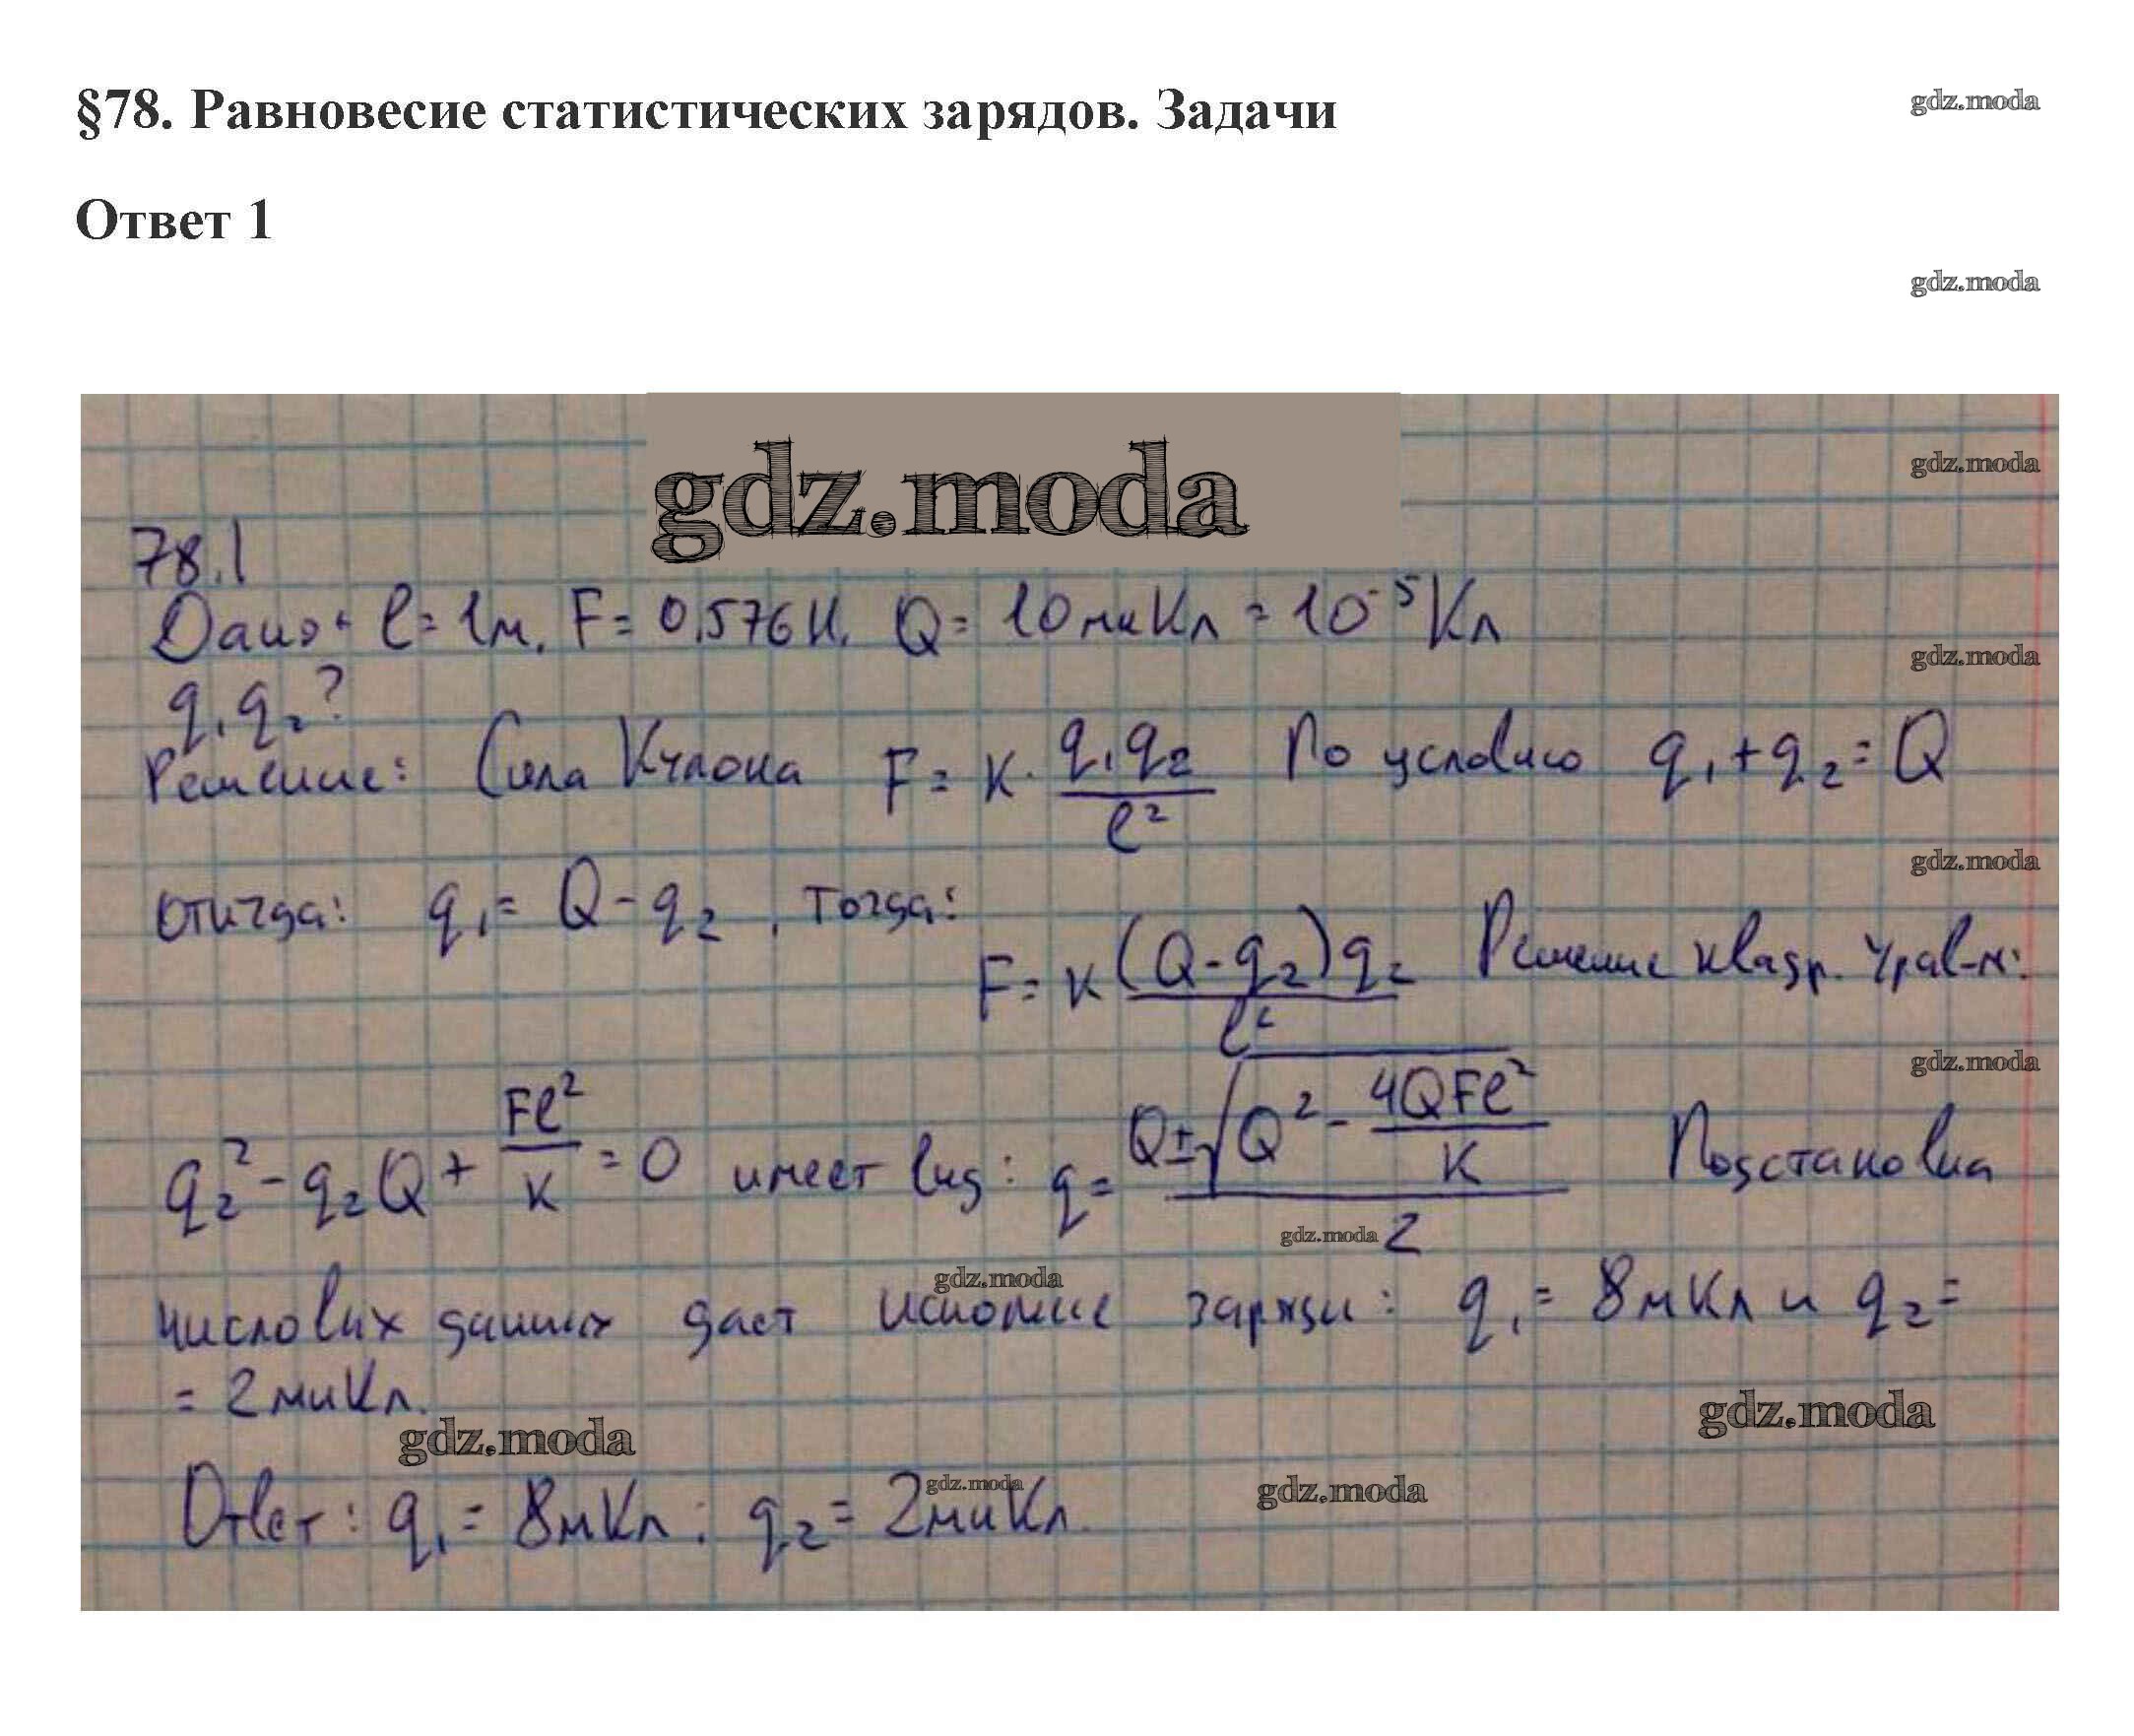 §78. Равновесие статистических зарядов. Задачи
gdz.moda
Ответ 1
gdz.moda
gdz.moda
gdz.moda
78.1
Дано: l = 1м, F = 0,576 Н, Q = 10 микКл = 10⁻⁵ Кл
gdz.moda
q₁, q₂?
Решение: Сила Кулона F = к · q₁q₂ / l² По условию q₁ + q₂ = Q
gdz.moda
отсюда: q₁ = Q - q₂, тогда:
F = к (Q - q₂) q₂ / l² Решение квадр. урав-я:
gdz.moda
q₂² - q₂Q + Fl² / к = 0 имеет вид: q = (Q ± √(Q² - 4QFl² / к)) / 2 Подстановка
gdz.moda
gdz.moda
числовых данных дает искомые заряды: q₁ = 8 мкКл и q₂ =
= 2 микКл.
gdz.moda
gdz.moda
gdz.moda
gdz.moda
Ответ: q₁ = 8 мкКл; q₂ = 2 микКл.